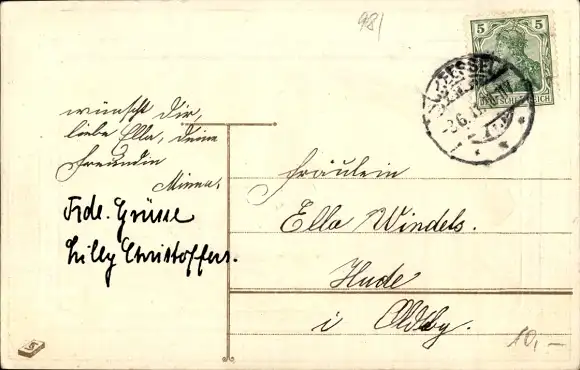 981
5 5
DEUTSCHES REICH
wünscht Dir,
liebe Ella, Deine
Freundin
Minna.
Frdl. Grüsse
Lilly Christoffers.
Fräulein
Ella Windels.
Hude
i Oldbg.
10,-